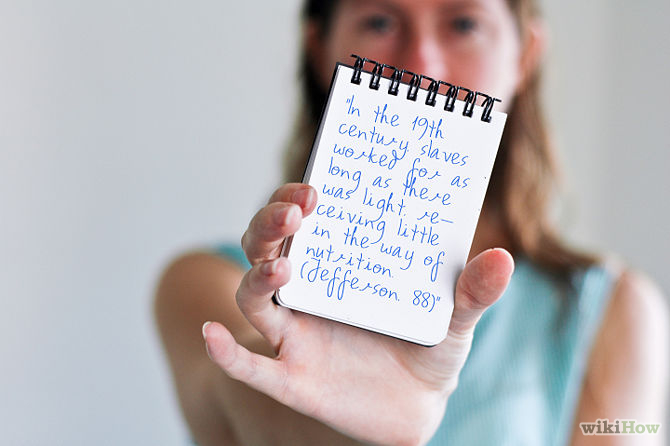 "In the 19th
century slaves
worked for as
long as there
was light, re-
ceiving little
in the way of
nutrition.
(Jefferson 88)"
wikiHow